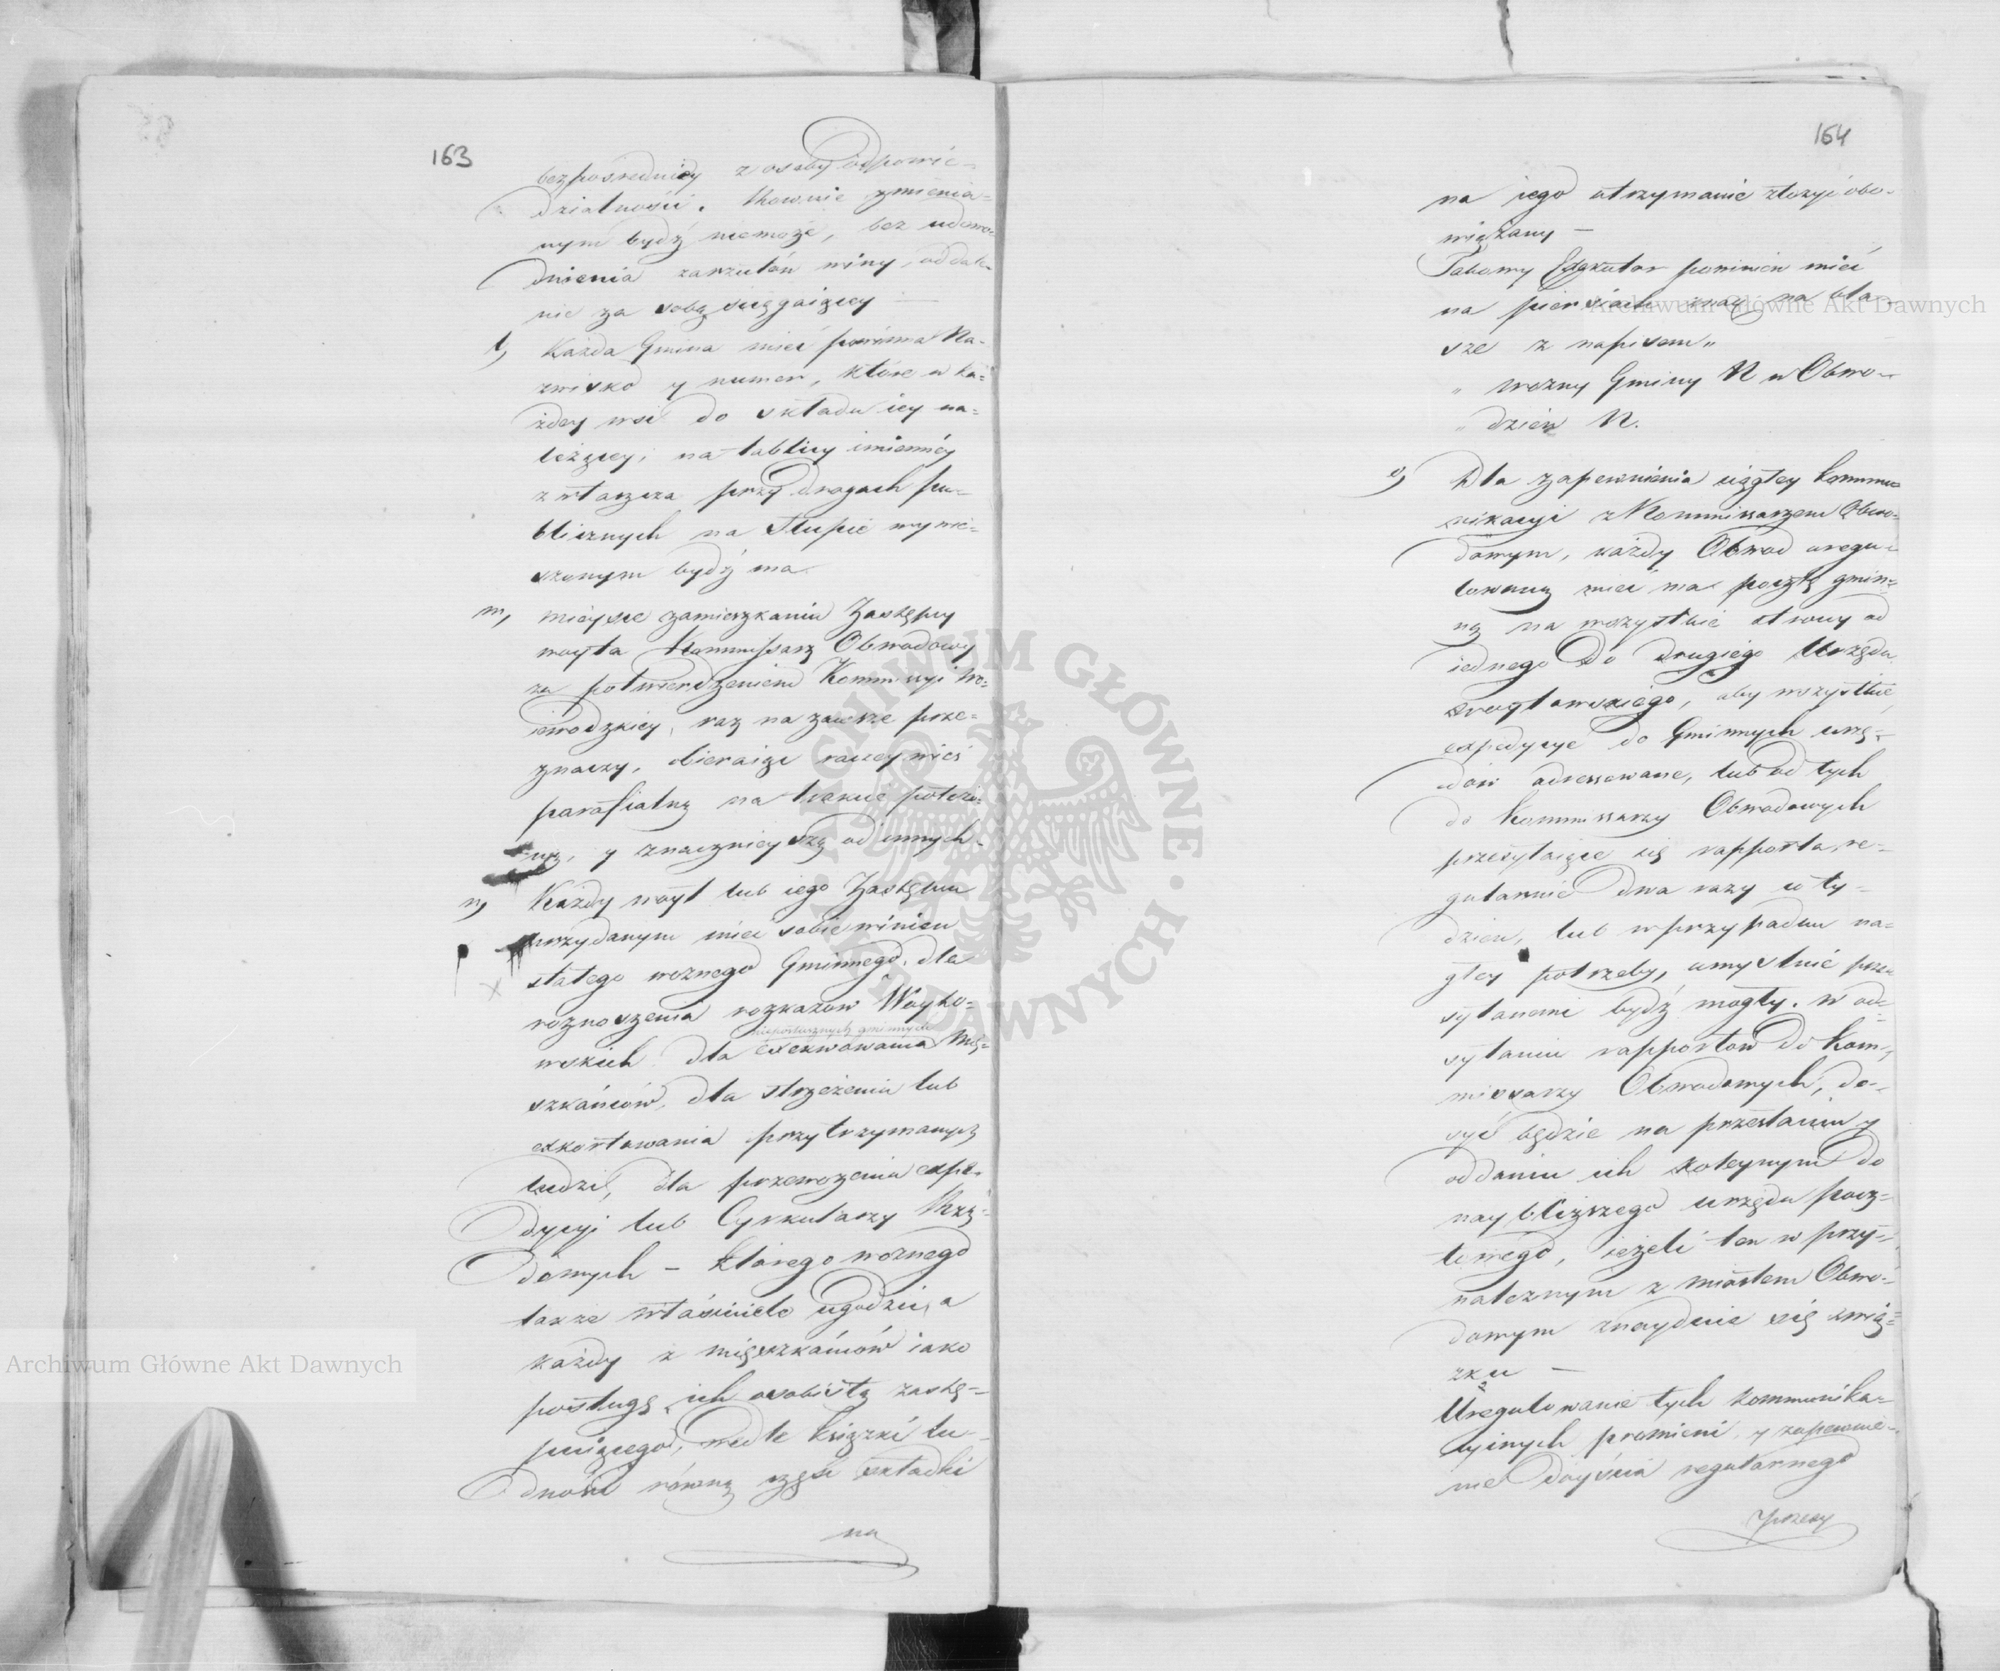 163
bezpośredniey z osoby odpowie-
dzialności. Równie zmienia-
nym bydź niemoże, bez udowo-
dnienia zarzutów winy, oddale-
nie za sobą sciągaiącey —
l, Każda Gmina mieć powinna Na-
zwisko y numer, które w ka-
żdey wsi do składu iey na-
leżącey, na tablicy imienney
zwłaszcza przy drogach pu-
blicznych na słupie wywie-
szonym bydź ma.
m, mieysce zamieszkania Zastępcy
woyta Kommissarz Obwodowy
za potwierdzeniem Kommissyi Wo-
iewodzkiey, raz na zawsze prze-
znaczy, obieraiąc raczey wieś
parafialną na trakcie położo-
ną, y znacznieyszą od innych.
n, Każdy woyt lub iego Zastępca
przydanym mieć sobie winien
stałego woznego Gminnego, dla
roznoszenia rozkazow Woyto-
nieposłusznych gminnych
wskich dla exekwowania Mię-
szkańców, dla strzeżenia lub
exkortowania przytrzymanych
ludzi, dla przewozenia expe-
dycyi lub Cyrkularzy Urzę-
dowych – którego woznego
takze właściciele ugodzić, a
każdy z mięszkańców iako
posługę ich osobistą zastę-
puiącego, wedle książki lu-
dności równą część składki
na
164
na iego utrzymanie złozyć obo-
wiązany —
Takowy Exekutor powinien mieć
na piersiach znak na bla-
sze z napisem „
„ wozny Gminy N w Obwo-
„ dzie N.
o, Dla zapewnienia ciągłey kommu-
nikacyi z Kommissarzem Obwo-
dowym, każdy Obwod uregu-
lowaną mieć ma pocztę gmin-
ną na wszystkie strony od
iednego do drugiego Urzędu
woytowskiego, aby wszystkie
expedycye do Gminnych urzę-
dow adressowane, lub od tych
do Kommissarzy Obwodowych
przesyłaiące się rapporta, re-
gularnie dwa razy w ty-
dzien, lub w przypadku na-
głey potrzeby, umyslnie prze-
syłanemi bydź mogły. w od-
syłaniu rapportow do Kom-
missarzy Obwodowych, do-
syć będzie na przesłaniu y
oddaniu ich koleynym do
naybliższego urzędu pocz-
towego, ieżeli ten w przy-
należnym z miastem Obwo-
dowym znayduie się związ-
zku —
Uregulowanie tych kommunika-
cyinych promieni y zapewnie-
nie doyścia regularnego
przesy
Archiwum Główne Akt Dawnych
Archiwum Główne Akt Dawnych
ARCHIWUM GŁÓWNE · AKT DAWNYCH ·